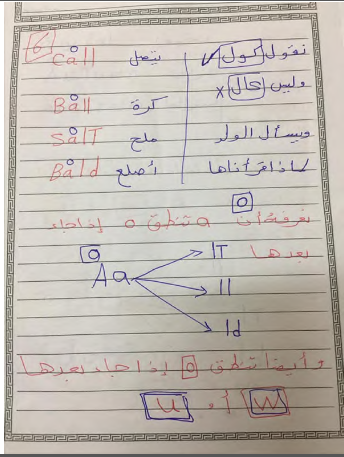 6
نقول كول ✓ يتصل Call
وليس كال x كرة Ball
ويسأل الولد ملح SalT
لماذا قرأناها أصلع Bald
o
نعرفه أن a تنطق o إذا جاء
بعدها lT
o
Aa ll
ld
وأيضا تنطق o إذا جاء بعدها
w أو u